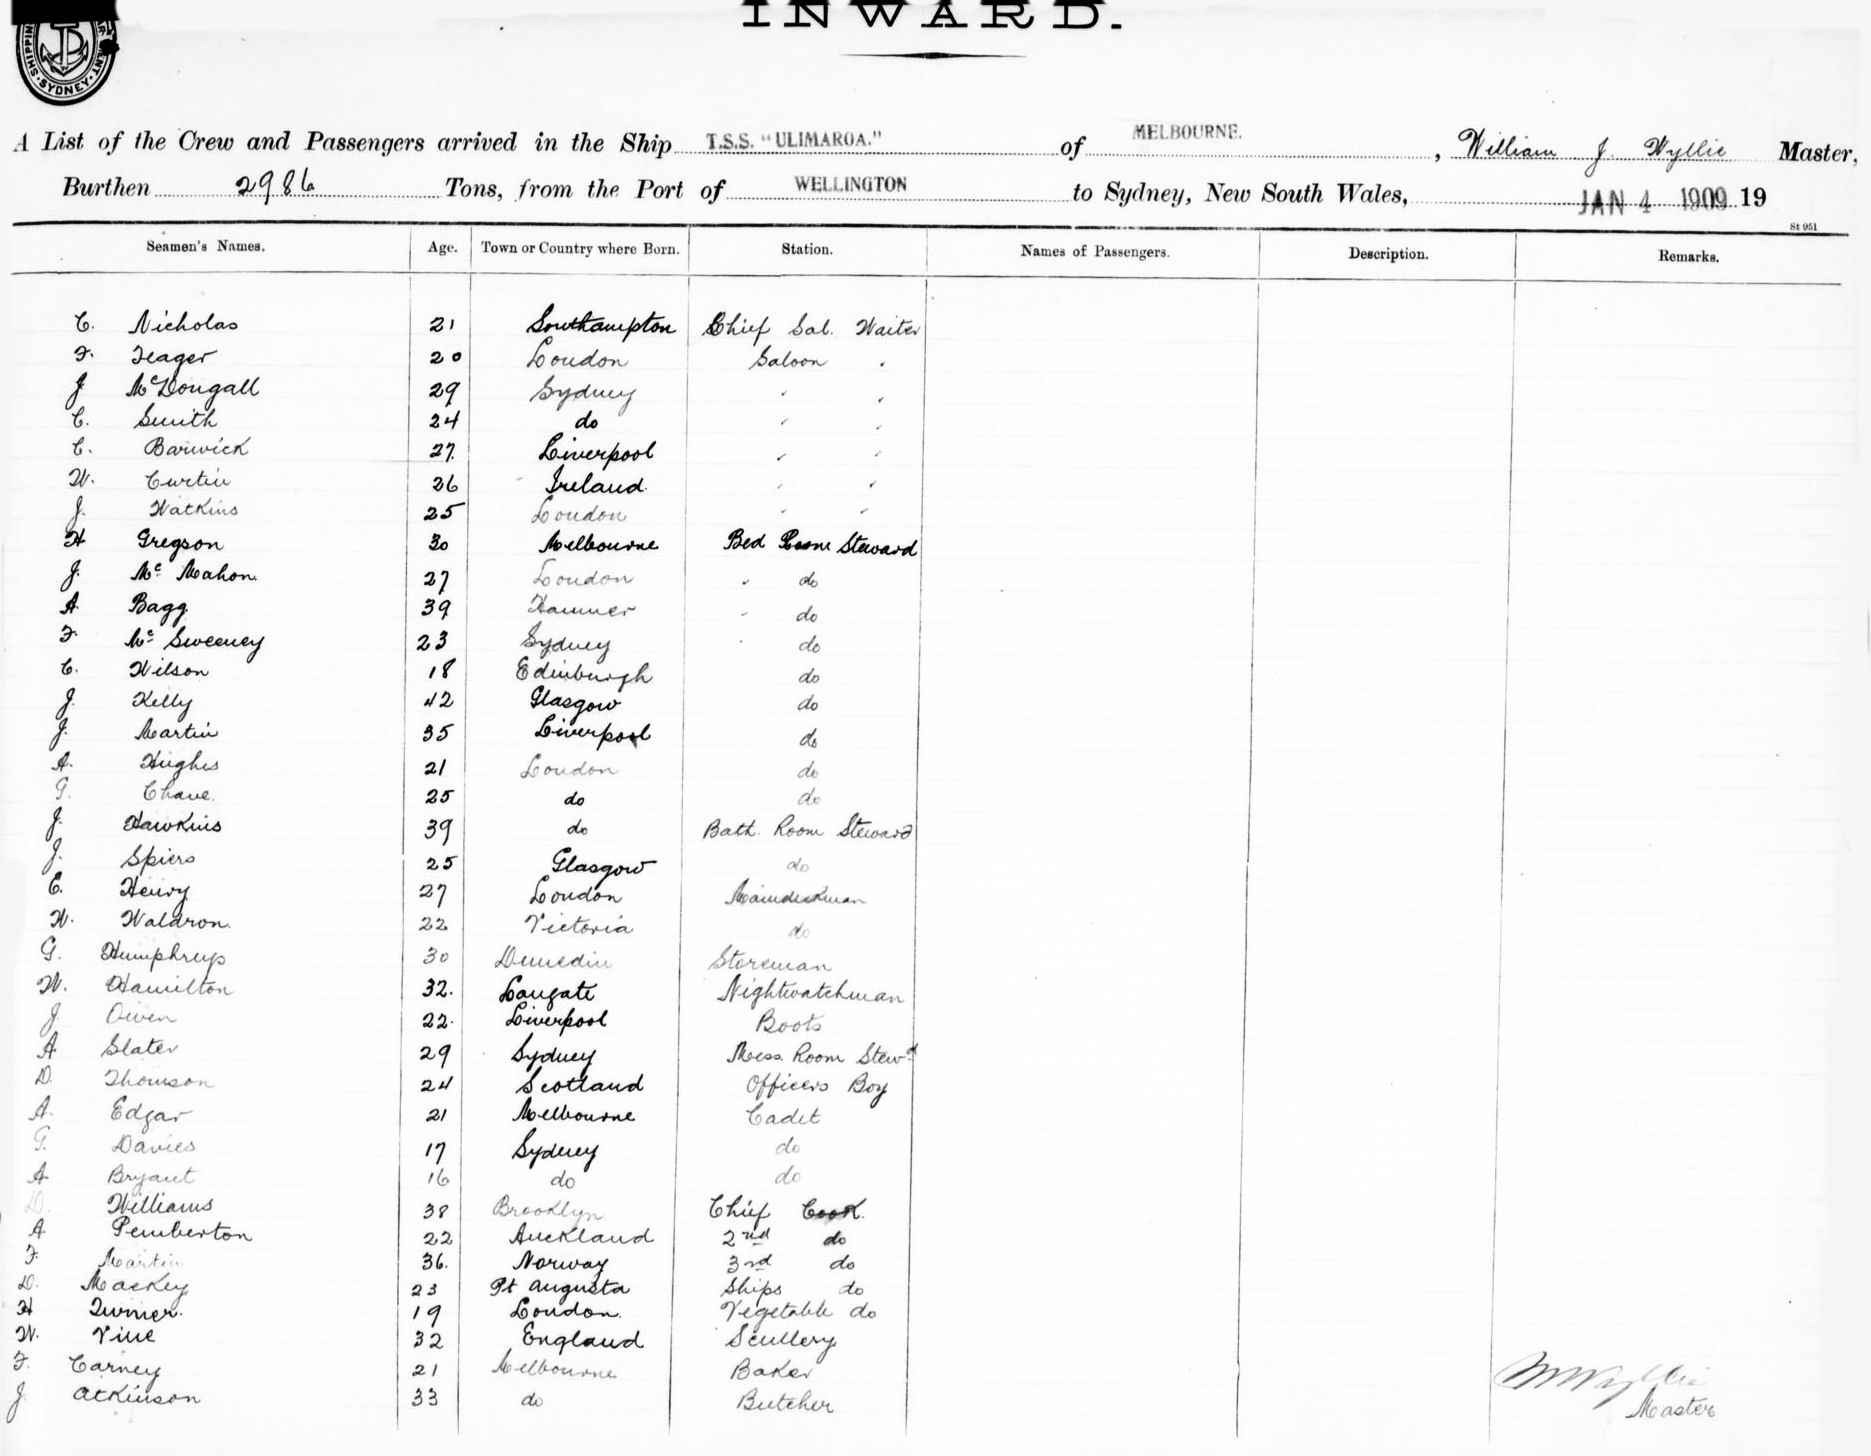 INWARD.
SHIPPING SYDNEY
A List of the Crew and Passengers arrived in the Ship T.S.S. "ULIMAROA." of MELBOURNE. , William J. Wyllie Master,
Burthen 2986 Tons, from the Port of WELLINGTON to Sydney, New South Wales, JAN 4 1909 19
St 951
Seamen's Names. Age. Town or Country where Born. Station. Names of Passengers. Description. Remarks.
C. Nicholas 21 Southampton Chief Sal. Waiter
F. Teager 20 London Saloon "
J McDougall 29 Sydney " "
C. Smith 24 do " "
C. Barwick 27. Liverpool " "
W. Curtin 26 Ireland. " "
J. Watkins 25 London " "
H Gregson 30 Melbourne Bed Room Steward
J. Mc Mahon. 27 London " do
A Bagg 39 " do
F Mc Sweeney 23 Sydney " do
C. Wilson 18 Edinburgh do
J. Kelly 42 Glasgow do
J. Martin 35 Liverpool do
A. Hughes 21 London do
G. Chave. 25 do do
J. Hawkins 39 do Bath. Room Steward
J. Spiers 25 Glasgow do
C. Henry 27 London
W. Waldron. 22 Victoria do
G. Humphreys 30 Dunedin Storeman
W. Hamilton 32. Nightwatchman
J Owen 22. Liverpool Boots
A Slater 29 Sydney Mess. Room Stewd
D. Thomson 24 Scotland Officers Boy
A. Edgar 21 Melbourne Cadet
G. Davies 17 Sydney do
A Bryant 16 do do
D. Williams 38 Brooklyn Chief Cook.
A Pemberton 22 Auckland 2nd do
F Martin 36. Norway 3rd do
D. Mackey 23 Pt Augusta Ships do
H Turner. 19 London. Vegetable do
W. Vine 32 England Scullery
F. Carney 21 Melbourne Baker
J Atkinson 33 do Butcher
W Wyllie
Master